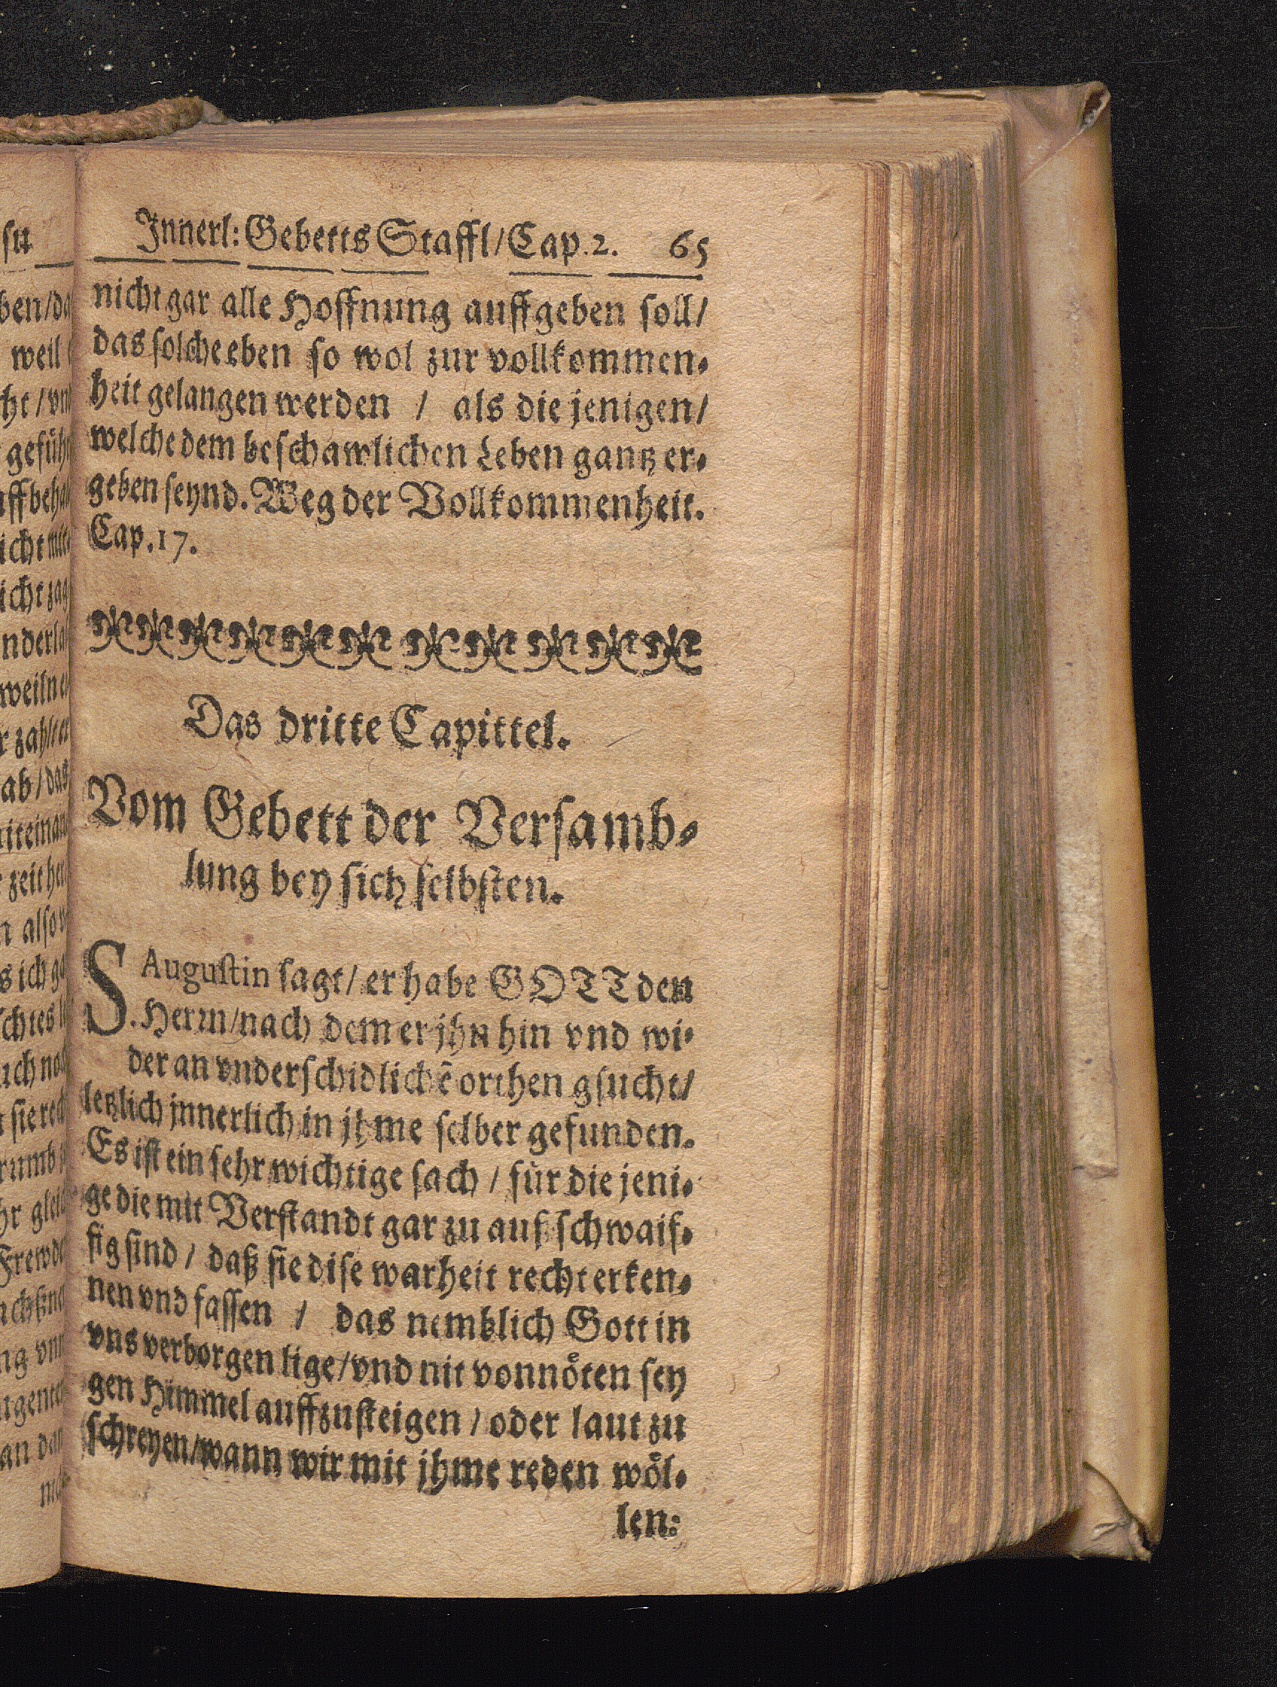 Innerl: Gebetts Staffl/Cap.2. 65
nicht gar alle Hoffnung auffgeben soll/
das solche eben so wol zur vollkommen-
heit gelangen werden / als die jenigen/
welche dem beschawlichen Leben gantz er-
geben seynd. Weg der Vollkommenheit.
Cap.17.
Das dritte Capittel.
Vom Gebett der Versamb-
lung bey sich selbsten.
S. Augustin sagt/ er habe GOTT den
Herrn/nach dem er jhn hin vnd wi-
der an vnderschidlichẽ orthen gsucht/
letzlich jnnerlich in jhme selber gefunden.
Es ist ein sehr wichtige sach / für die jeni-
ge die mit Verstandt gar zu auß schwaif-
fig sind / daß sie dise warheit recht erken-
nen vnd fassen / das nemblich Gott in
vns verborgen lige/vnd nit vonnöten sey
gen Himmel auffzusteigen / oder laut zu
schreyen/wann wir mit jhme reden wöl-
len: